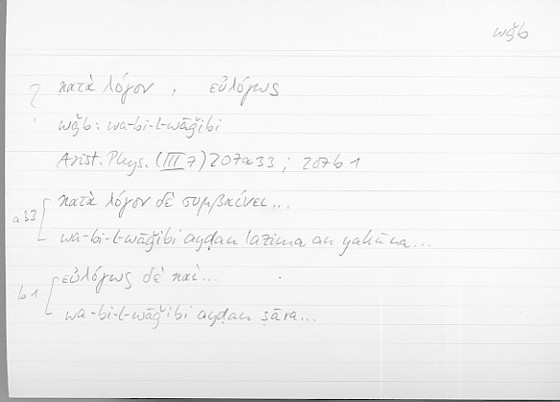 wǧb
? κατὰ λόγον , εὐλόγως
wǧb: wa-bi-l-wāǧibi
Arist. Phys. (III 7) 207a33 ; 207b1
a33 κατὰ λόγον δὲ συμβαίνει...
wa-bi-l-wāǧibi ayḍan lazima an yakūna...
b1 εὐλόγως δὲ καὶ...
wa-bi-l-wāǧibi ayḍan ṣāra...